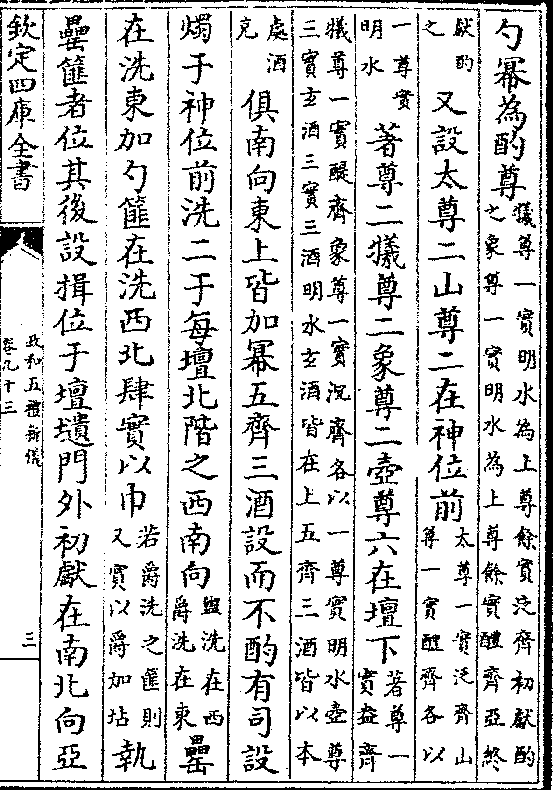 勺冪為酌尊犧尊一實明水為上尊餘實泛齊初獻酌
之象尊一實明水為上尊餘實醴齊亞終
獻酌
之又設太尊二山尊二在神位前太尊一實泛齊山
尊一實醴齊各以
一尊實
明水著尊二犧尊二象尊二壺尊六在壇下著尊一
實盎齊
犧尊一實醍齊象尊一實沉齊各以一尊實明水壺尊
三實玄酒三實三酒明水玄酒皆在上五齊三酒皆以本
處酒
充俱南向東上皆加冪五齊三酒設而不酌有司設
燭于神位前洗二于每壇北階之西南向盥洗在西
爵洗在東罍
在洗東加勺篚在洗西北肆實以巾若爵洗之篚則
又實以爵加坫執
罍篚者位其後設揖位于壇壝門外初獻在南北向亞
欽定四庫全書
政和五禮新儀
卷九十三
三